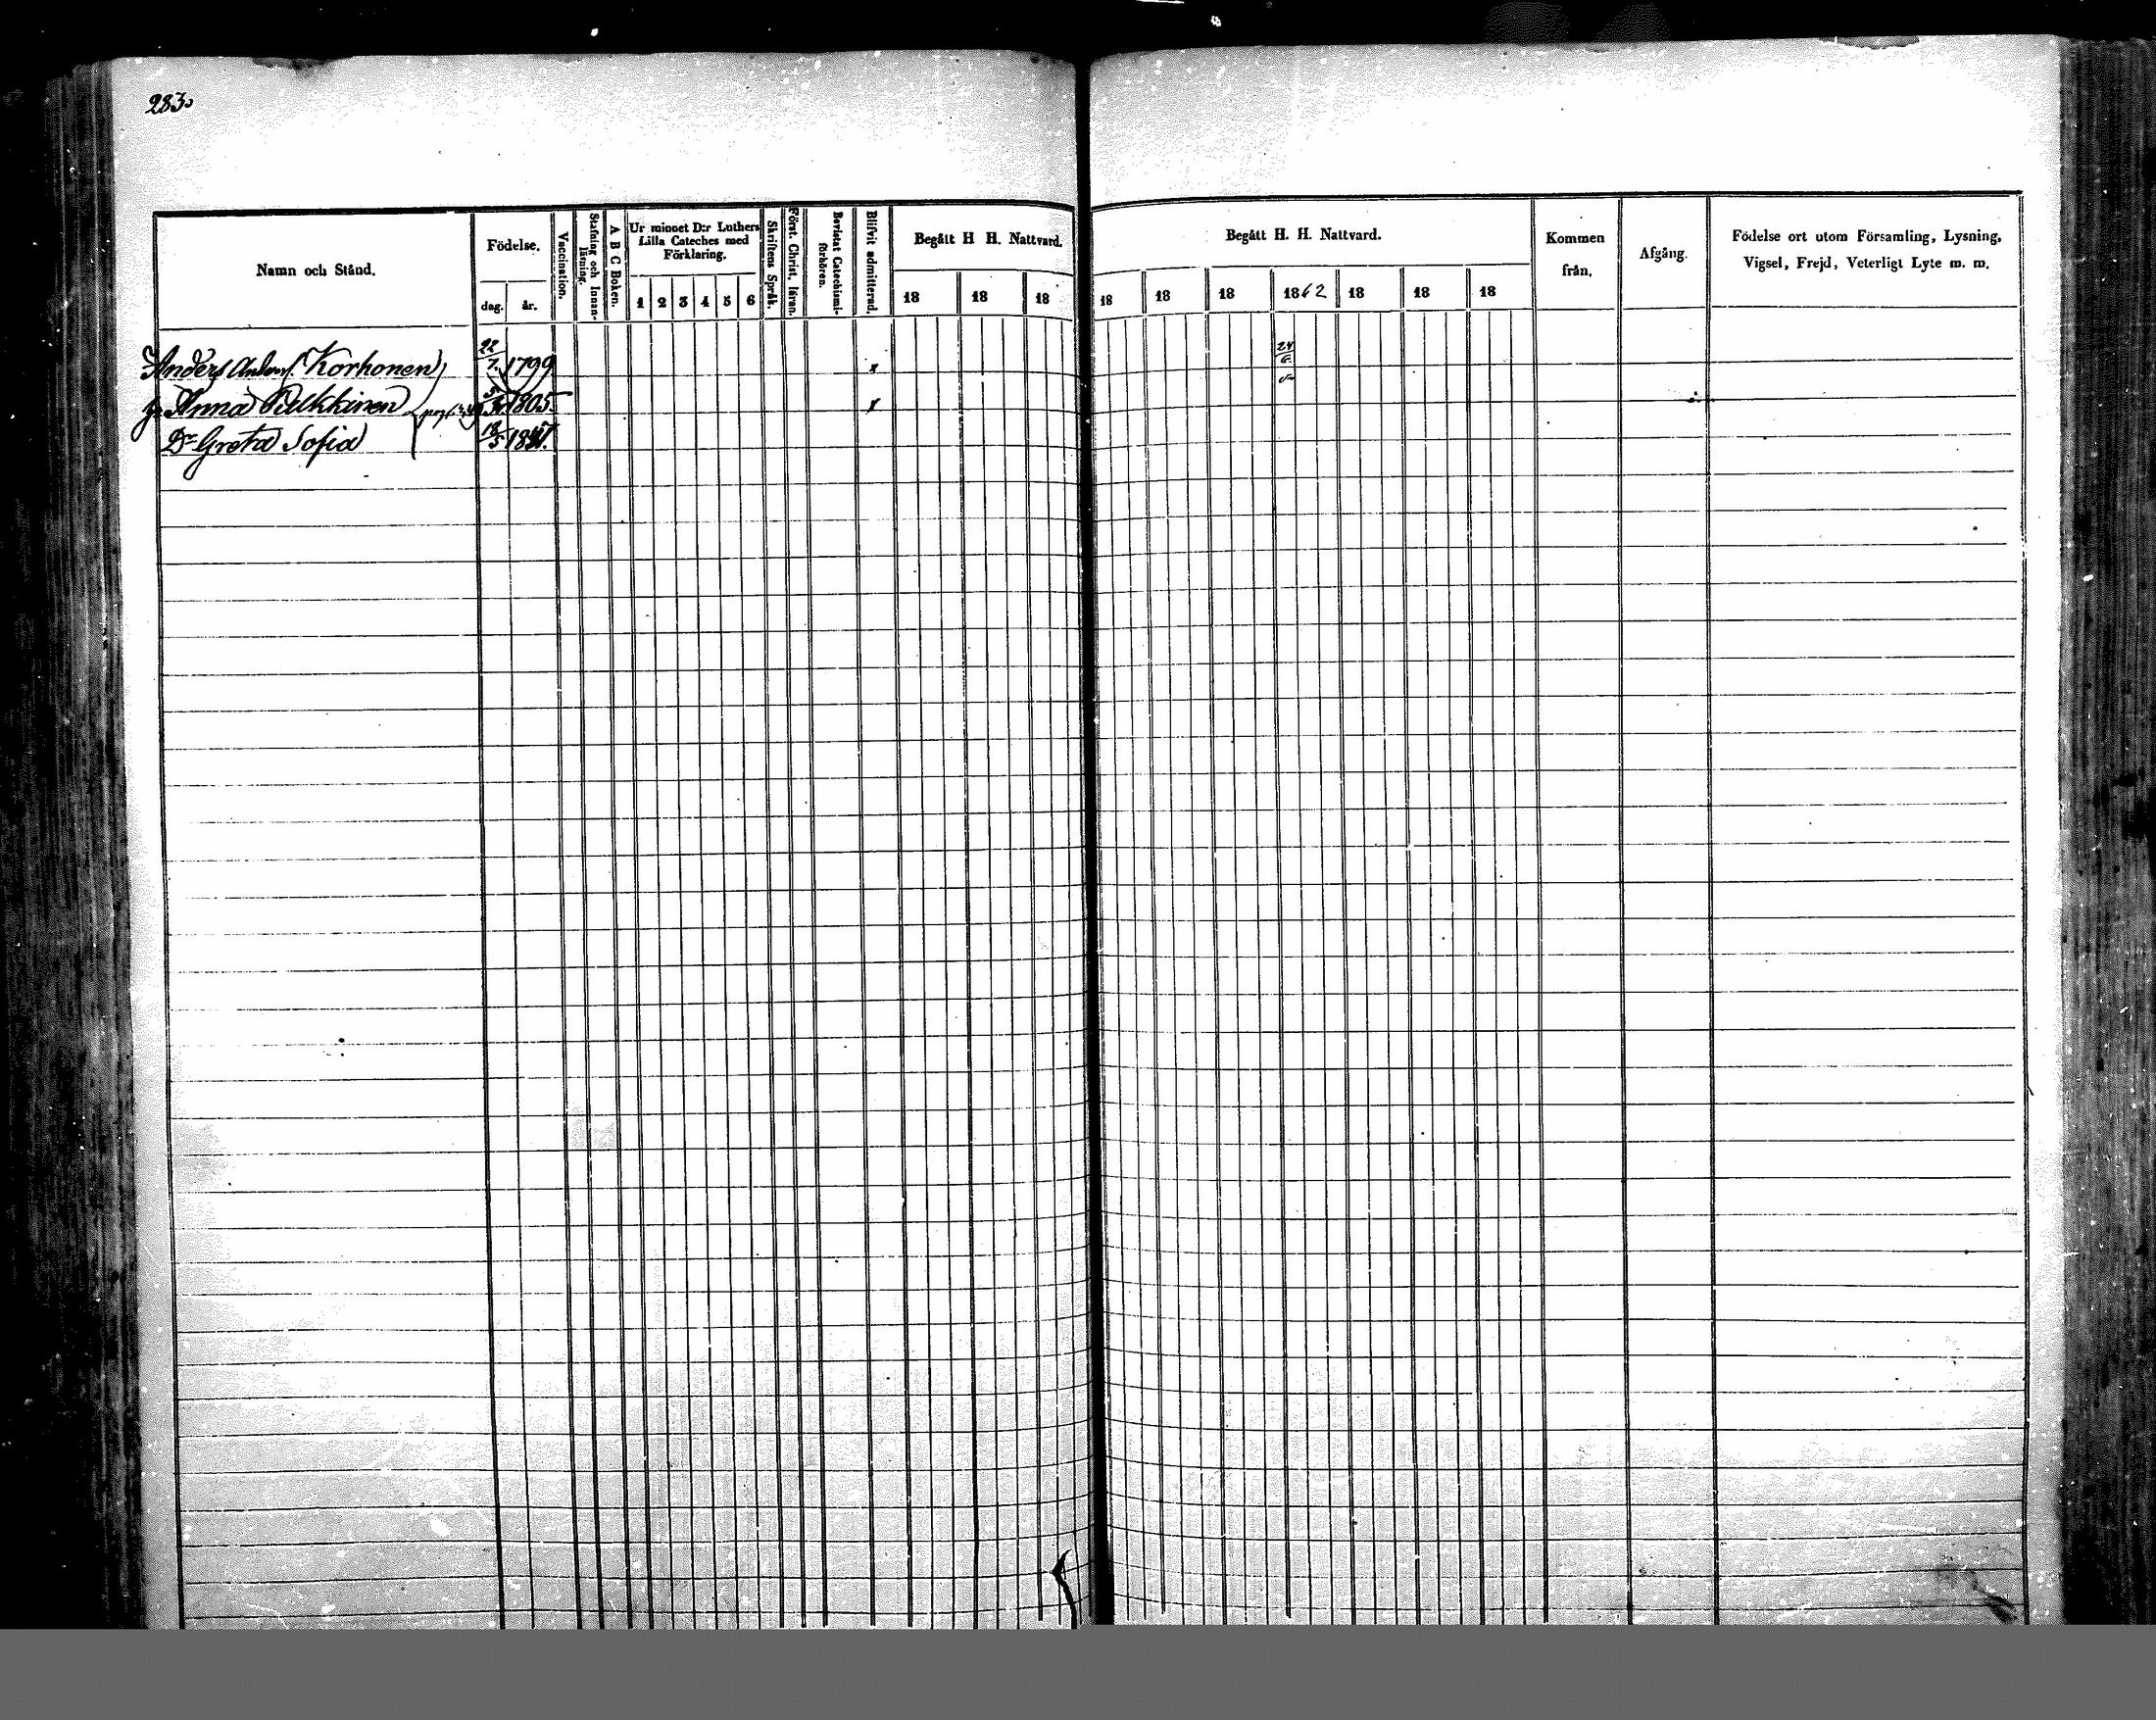 283.
Namn och Stånd.
Födelse.
dag. år.
Vaccination.
Stafning och Innanläsning.
A B C Boken.
Ur minnet D:r Luthers Lilla Cateches med Förklaring.
1 2 3 4 5 6
Skriftens Språk.
Först. Christ. läran.
Bevistat Catechismi-förhören.
Blifvit admitterad.
Begått H H. Nattvard.
18 18 18
Begått H. H. Nattvard.
18 18 18 1862 18 18 18
Kommen från.
Afgång.
Födelse ort utom Församling, Lysning, Vigsel, Frejd, Veterligt Lyte m. m.
Anders Anders. Korhonen 22/7. 1799 x 24/6
Anna Pulkkinen 1805. x
Dr Greta Sofia 18/5